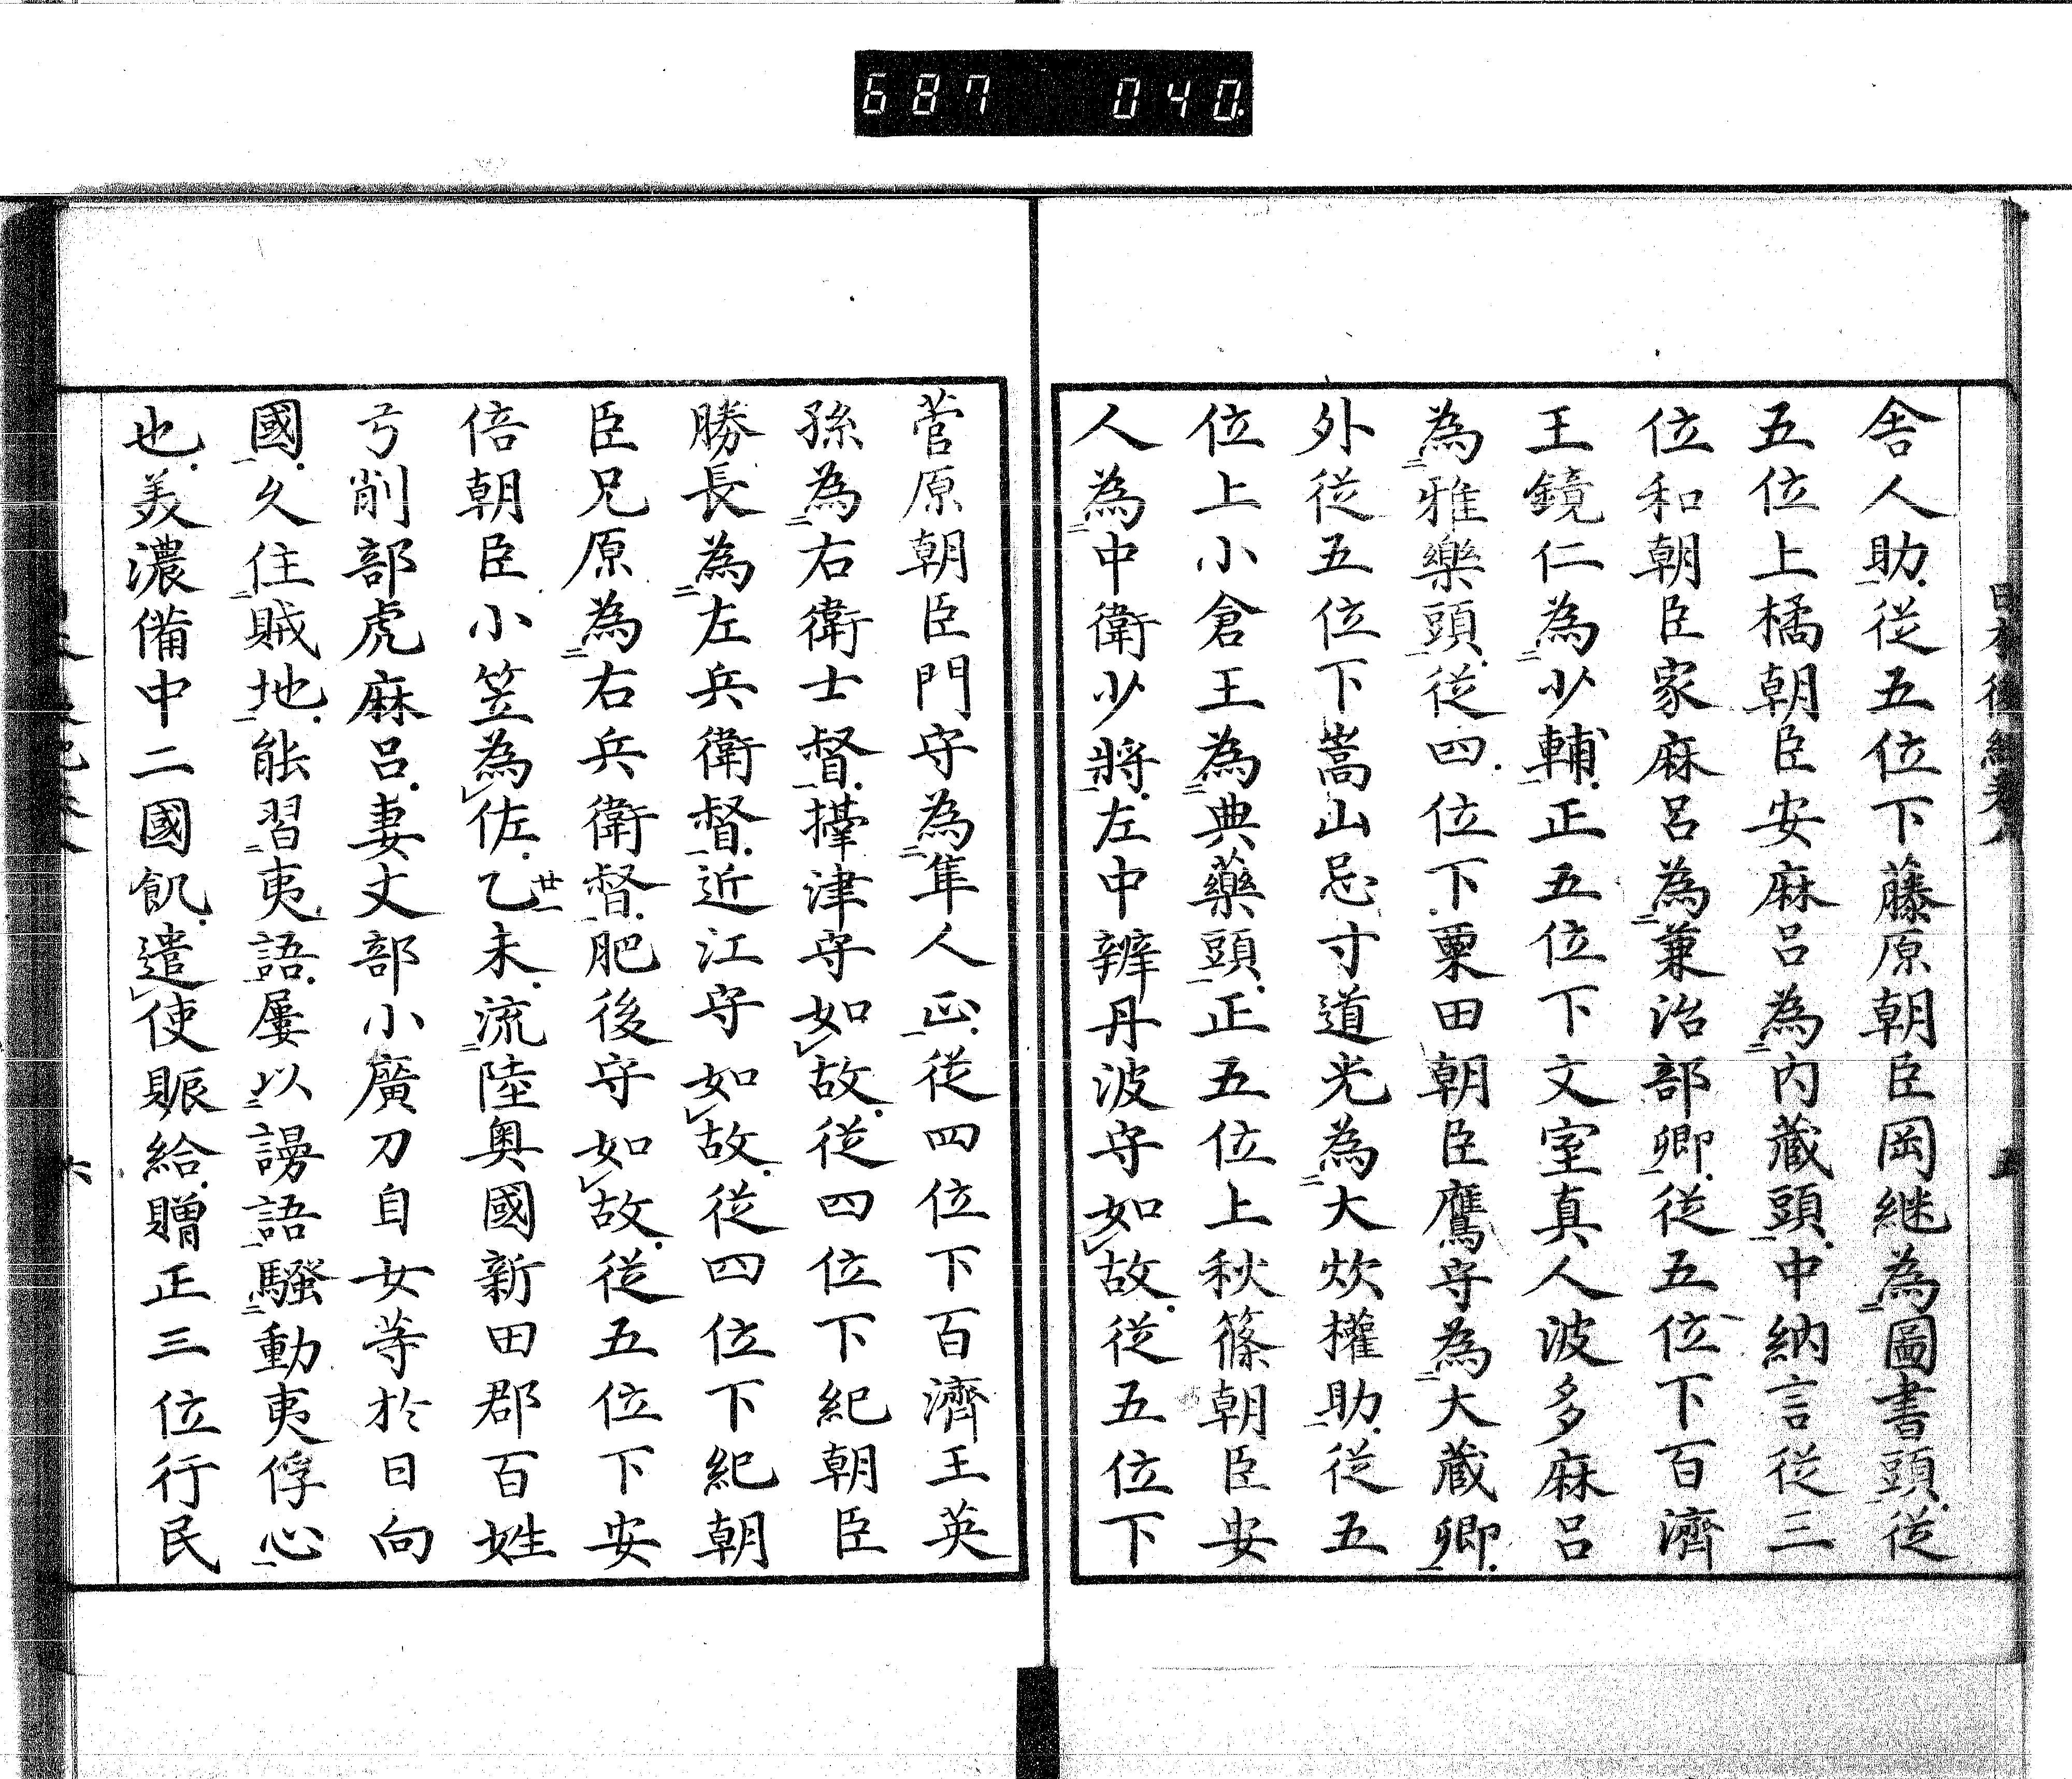 687 040
舎人助従五位下藤原朝臣岡継為圖書頭従
五位上橘朝臣安麻呂為内蔵頭中納言従三
位和朝臣家麻呂為兼治部卿従五位下百濟
王鏡仁為少輔正五位下文室真人波多麻呂
為雅樂頭従四位下粟田朝臣鷹守為大蔵卿
外従五位下嵩山忌寸道光為大炊權助従五
位上小倉王為典藥頭正五位上秋篠朝臣安
人為中衛少將左中辨丹波守如故従五位下
菅原朝臣門守為隼人正従四位下百濟王英
孫為右衛士督攝津守如故従四位下紀朝臣
勝長為左兵衛督近江守如故従四位下紀朝
臣兄原為右兵衛督肥後守如故従五位下安
倍朝臣小笠為佐乙未流陸奥國新田郡百姓
廿一
弓削部虎麻呂妻丈部小廣刀自女等於日向
國久住賊地能習夷語屢以謾語騷動夷俘心
也美濃備中二國飢遣使賑給贈正三位行民